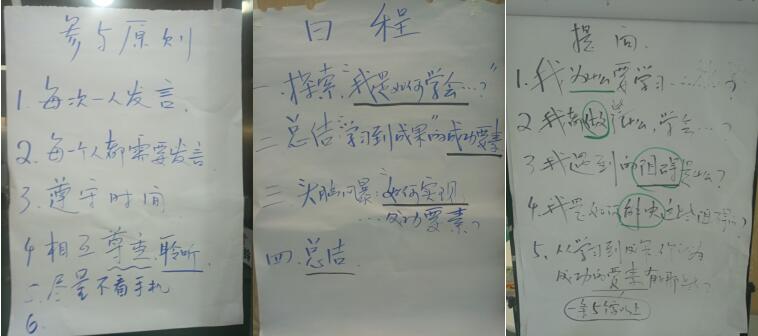 参与原则
1. 每次一人发言.
2. 每个人都需要发言
3. 遵守时间
4. 相互尊重、聆听.
二. 尽量不看手机
6.
日程
一. 探索"我是如何学会…?"
二 总结"学习到成果"的成功要素
三 头脑风暴: 如何实现
…成功要素?
四. 总结.
提问.
1. 我为什么要学习……?
2 我都做 什么, 学会…?
3 我遇到的阻碍是什么?
4. 我是如何解决这些阻碍的?
5. 从学习到成果 你认为
成功的要素有哪些?
一条5 以上